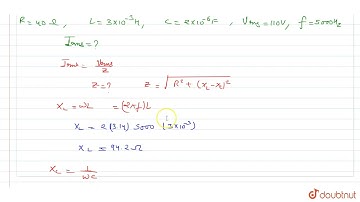 R = 40 Ω, L = 3×10⁻³H, C = 2×10⁻⁶F, Vrms = 110V, f = 5000Hz
Irms = ?
Irms = Vrms/Z
Z = ? Z = √R² + (XL-XC)²
XL = ωL = (2πf)L
XL = 2(3.14) 5000 (3×10⁻³)
XL = 94.2Ω
XC = 1/ωC
doubtnut